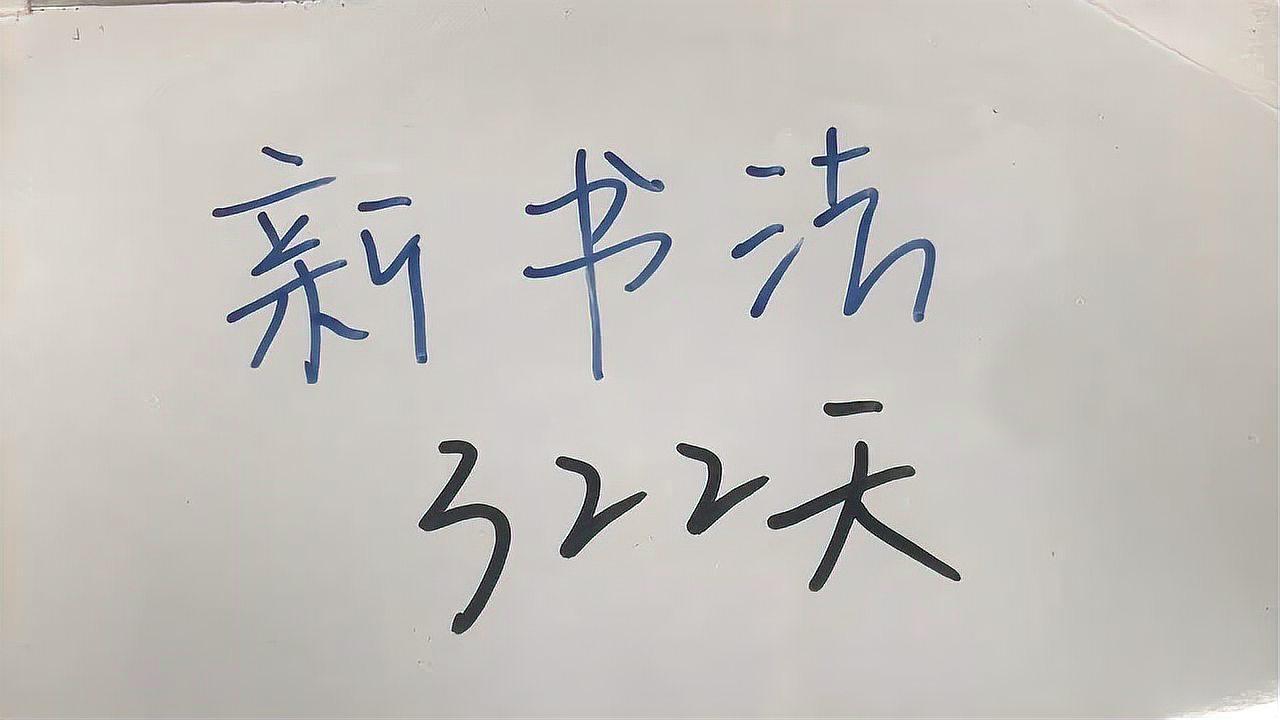 新书法
322天